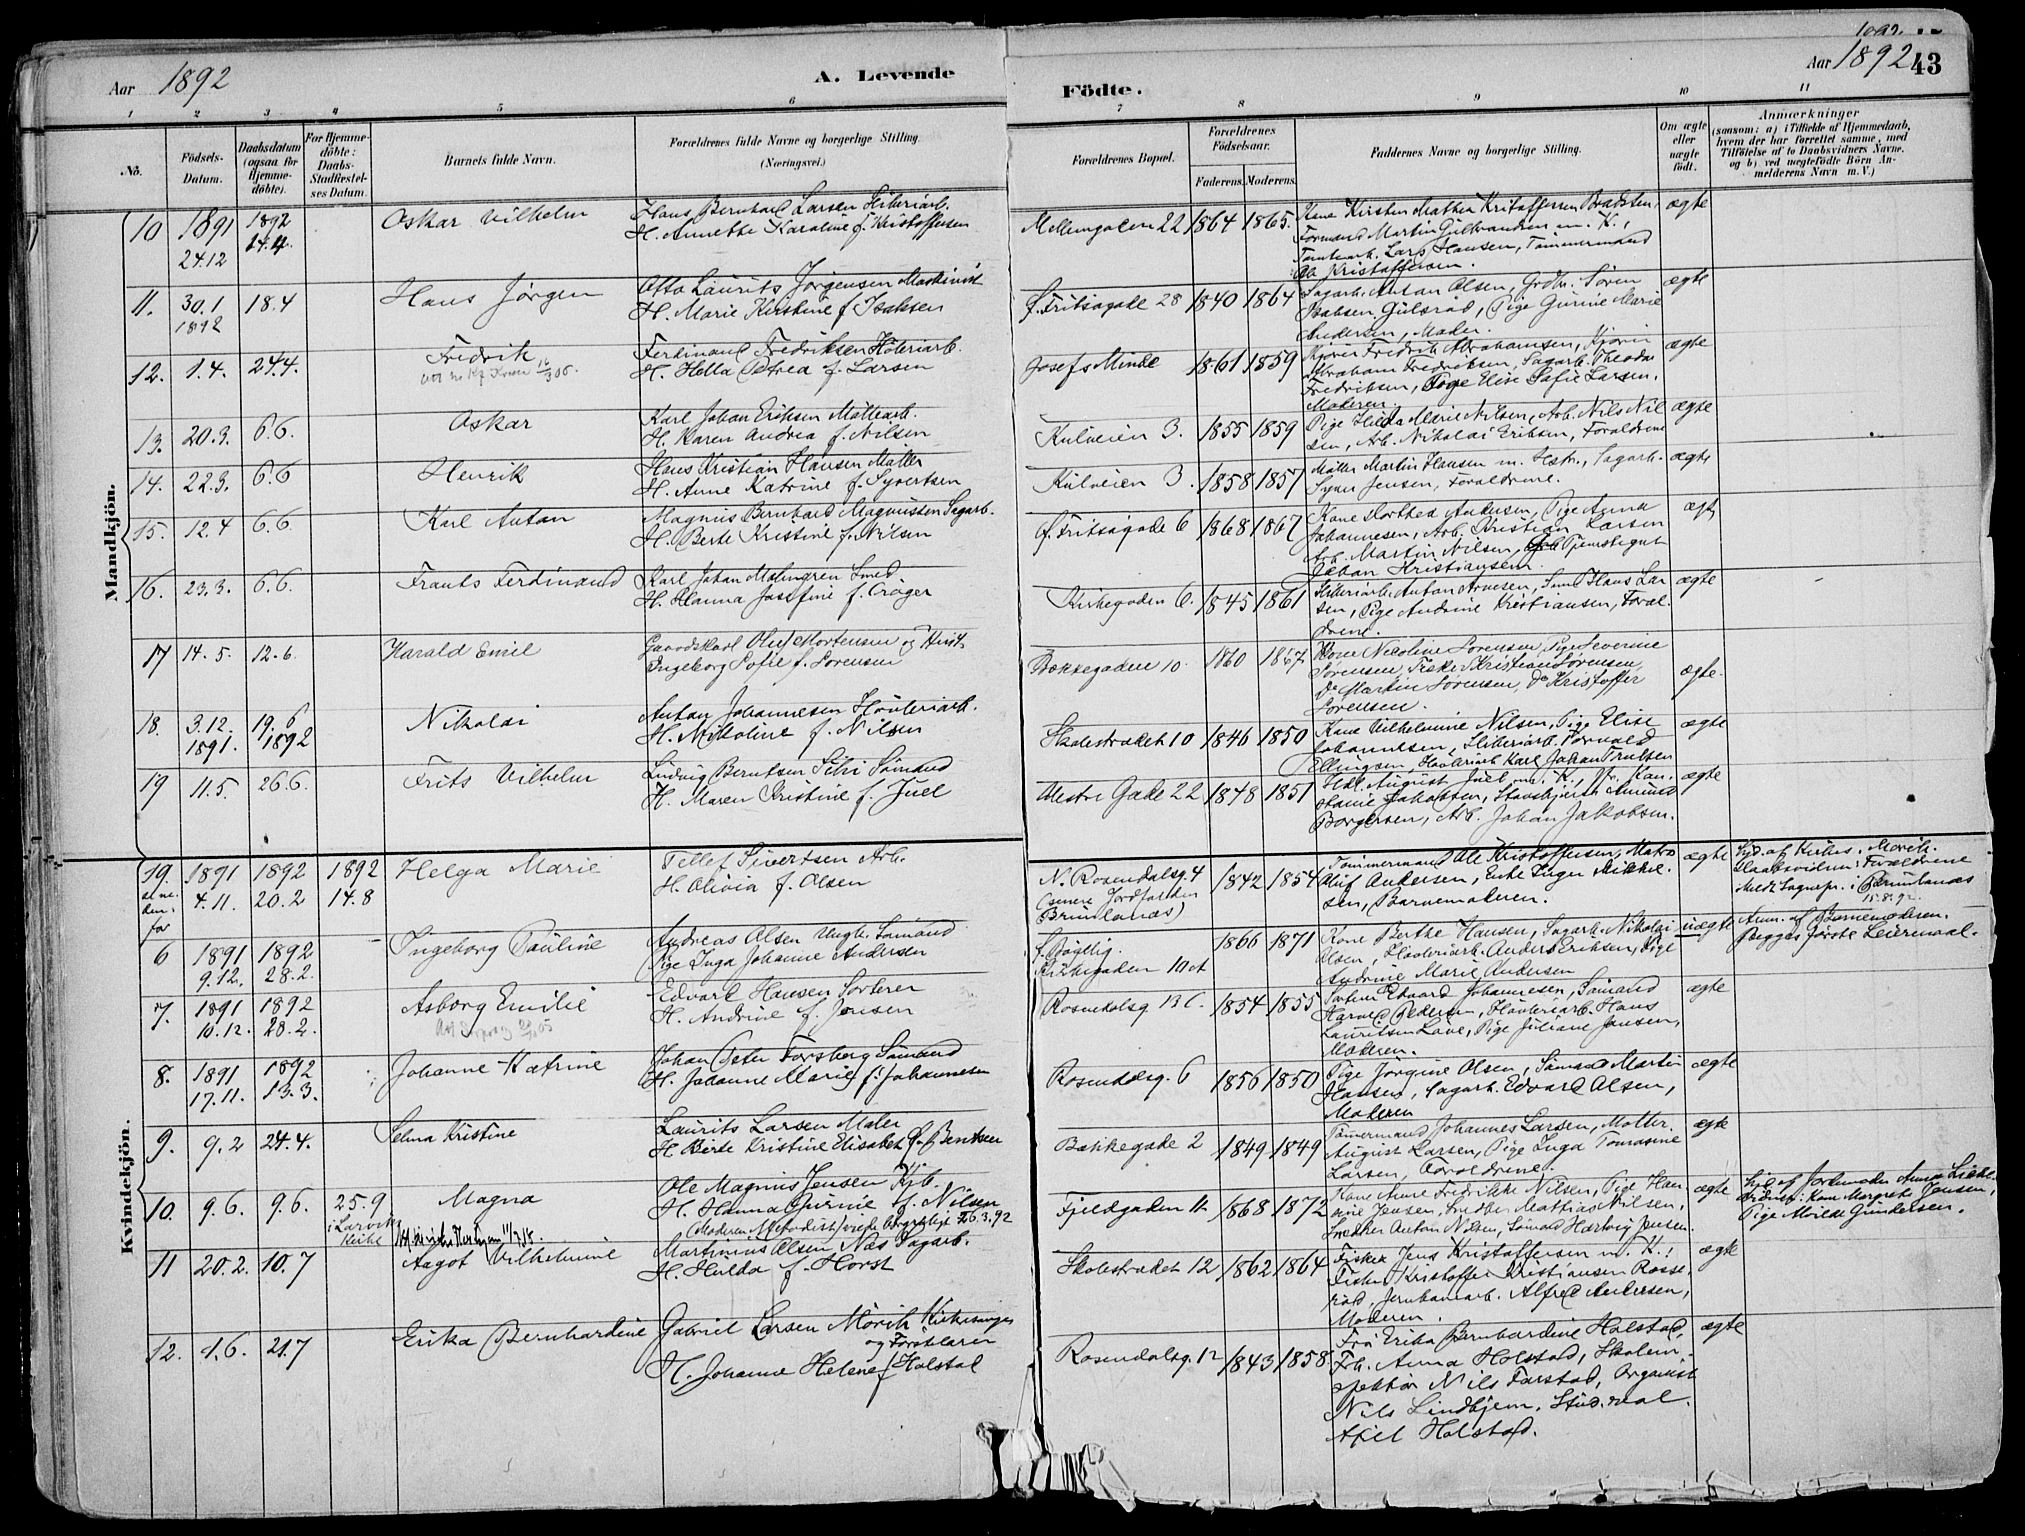 Aar 1892
A. Levende
Födte.
Aar 1892
43
1 2 3 4 5 6 7 8 9 10 11
No.
Födsels-Datum.
Daabsdatum (ogsaa for Hjemmedöbte).
For Hjemmedöbte: Daabs-Stadfæstelses Datum.
Barnets fulde Navn.
Forældrenes fulde Navne og borgerlige Stilling. (Næringsvei.)
Forældrenes Bopæl.
Forældrenes Födselsaar.
Faderens. Moderens.
Faddernes Navne og borgerlige Stilling.
Om ægte eller uægte födt.
Anmærkninger
(saasom: a) i Tilfælde af Hjemmedaab,
hvem der har forrettet samme, med
Tilföielse af to Daabsvidners Navne.
og b) ved uægtefödte Börn Anmelderens Navn m. V.)
Mandkjön.
10 1891 24.12 1892 24.4. Oskar Vilhelm
Hans Bernhard Larsen Sliberiarb.
H. Annette Karoline f. Kristoffersen
Mellemgaden 22 1864 1865.
Formand Martin Gulbrandsen m. K.,
Tomtearb. Lars Hansen, Tömmermand
Ole Kristoffersen.
ægte
11. 30.1 1892 18.4 Hans Jörgen
Otto Laurits Jörgensen Maskinist
H. Marie Kirstine f. Isaksen
f. Fritsögade 28 1840 1864
Sagarb. Anton Olsen, Grdbr. Sören
Isaksen Gulsrød, Pige Gurine Marie
Andersen, Moder.
ægte
12. 1.4. 24.4. Fredrik
Ferdinand Fredriksen Höleriarb.
H. Hella Petrea f. Larsen
Josefs Minde 1861 1859
Kjörer Fredrik Abrahamsen, Kjörer
Abraham Fredriksen, Sagarb. Theodor
Fredriksen, Pige Elise Sofie Larsen.
Moderen.
ægte
13. 20.3. 6.6. Oskar
Karl Johan Eriksen Möllearb.
H. Karen Andrea f. Nilsen
Kulveien 3. 1855 1859
Pige Hilda Marie Nilsen, Arb. Nils Nilsen, Arb. Nikolai Eriksen, Forældrene
ægte
14. 22.3. 6.6 Henrik
Hans Kristian Hansen Möller
H. Anne Katrine f. Syvertsen
Kulveien 3. 1858 1857
Möller Martin Hansen m. Hstr., Sagarb.
Jensen, Forældrene.
ægte
15. 12.4 6.6. Karl Anton
Magnus Bernhard Magnussen Sagarb.
H. Berte Kristine f. Nilsen
f. Fritsögade 6 1868 1867
Kone Dorthea Andersen, Pige Anna
Johannesen, Arb. Kristian Larsen
Arb. Martin Nilsen, Tjenestegut
Johan Kristiansen.
ægte
16. 23.3. 6.6. Frants Ferdinand
Karl Johan Malmgren Smed
H. Hanna Josefine f. Cröger
Kirkegaden 6. 1845 1861
Sliberiarb. Anton Arnesen, Smed Hans Larsen, Pige Andrine Kristiansen, Forældrene.
ægte
17 14.5. 12.6. Harald Emil
Gaardskarl Oluf Mortensen og Hust.
Ingeborg Sofie f. Sörensen
Bækkegaden 10 1860 1867
Kone Nicoline Sörensen, Pige Severine
Sörensen, Fisker Kristian Sörensen,
Do Martin Sörensen, Do Kristoffer
Sörensen.
ægte.
18. 3.12. 1891. 19.6 1892 Nikolai
Anton Johannesen Hövleriarb.
H. Nikoline f. Nilsen
Skolestrædet 10 1846 1850
Kone Vilhelmine Nilsen, Pige Elise
Johannesen, Sliberiarb. Torvald
Ellingsen, Hövleriarb. Karl Johan Trulsen
ægte
19 11.5. 26.6. Frits Vilhelm
Ludvig Berntsen Sömand
H. Maren Kristine f. Juel
Vestre Gade 22 1848 1851
August Juel m. K., Jakobsen,
Borgersen, Arb. Johan Jakobsen.
ægte
Kvindekjön.
19. 1891 4.11. 1892 20.2 1892 14.8 Helga Marie
Tellef Sivertsen Arb.
H. Olivia f. Olsen
N. Rosendalsg. 4
Brunlanæs)
1842 1854
Tömmermand Ole Kristoffersen, Matros
Oluf Andersen, Enke Inger Mikkelsen, Barnemoderen.
ægte
Hjd. af Kirkes. Mørch.
Daabsvidner: Forældrene
Brunlanæs
15.8.92
6 1891 9.12. 1892 28.2. Ingeborg Pauline
Andreas Olsen Ungk. Sömand
Pige Inga Johanne Andersen
Kirkegaden 10 1866 1871
Kone Berthe Hansen, Sagarb. Nikolai
Olsen, Hövleriarb. Anders Eriksen, Pige
Andrine Marie Andersen
uægte
Anm. af Barnemoderen.
Begges første Leiermaal.
7. 1891 10.12. 1892 28.2. Asborg Emilie
Edvard Hansen Sorterer
H. Andrine f. Jensen
Rosendalsg 13 c. 1854 1855
Sorterer Edvard Johannesen, Sömand
Pedersen, Hövleriarb. Hans
Lauritsen Lave, Pige Juliane Jensen,
Moderen.
ægte
8. 1891 17.11. 1892 13.3. Johanne Katrine
Johan Peter Forsberg Sömand
H. Johanne Marie f. Johannesen
Rosendalsg. 6 1856 1850
Pige Jörgine Olsen, Sömand Martin
Hansen, Sagarb. Edvard Olsen,
Moderen
ægte
9. 9.2 24.4. Selma Kristine
Laurits Larsen Maler
H. Berte Kristine Elisabet f. Berntsen
Bækkegade 2 1849 1849
Tömmermand Johannes Larsen, Möller
August Larsen, Pige Inga Tomasine
Larsen, Forældrene.
ægte
10. 9.6. 9.6. 25.9 i Larviks Kirke Magna
Ole Magnus Jensen Kjb.
H. Hanna Gurine f. Nilsen
(Moderen Methodist, viede borgerligt 26.3.92
Fjeldgaden 1868 1872
Kone Anne Fredrikke Nilsen, Pige Hanne Jensen, Mathias Nilsen,
Snedker Anton Nilsen, Sömand Hartvig Jensen.
ægte
Hjd. af Jordemoder Anna Lykke.
Vidner: Kone Margrete Jensen,
Pige Milda Gundersen.
11 20.2. 10.7 Aagot Vilhelmine
Martinius Olsen Næs Sagarb.
H. Hulda f. Horst
Skolestrædet 12 1862 1864
Fisker Jens Kristoffersen m. K.,
Fisker Kristoffer Kristiansen, Jernbanearb. Alfred Andersen,
Moderen.
ægte
12. 1.6. 21.7 Erika Bernhardine
Gabriel Larsen Mörch Kirkesanger
og Forstlærer
H. Johanne Helene f. Holstad
Rosendalsg. 12 1843 1858
Frö. Erika Bernhardine Holstad,
Frk. Anna Holstad, Skoleinspektör Nils Farstad, Organist
Nils Lindhjem, Stud. real.
Axel Holstad.
ægte